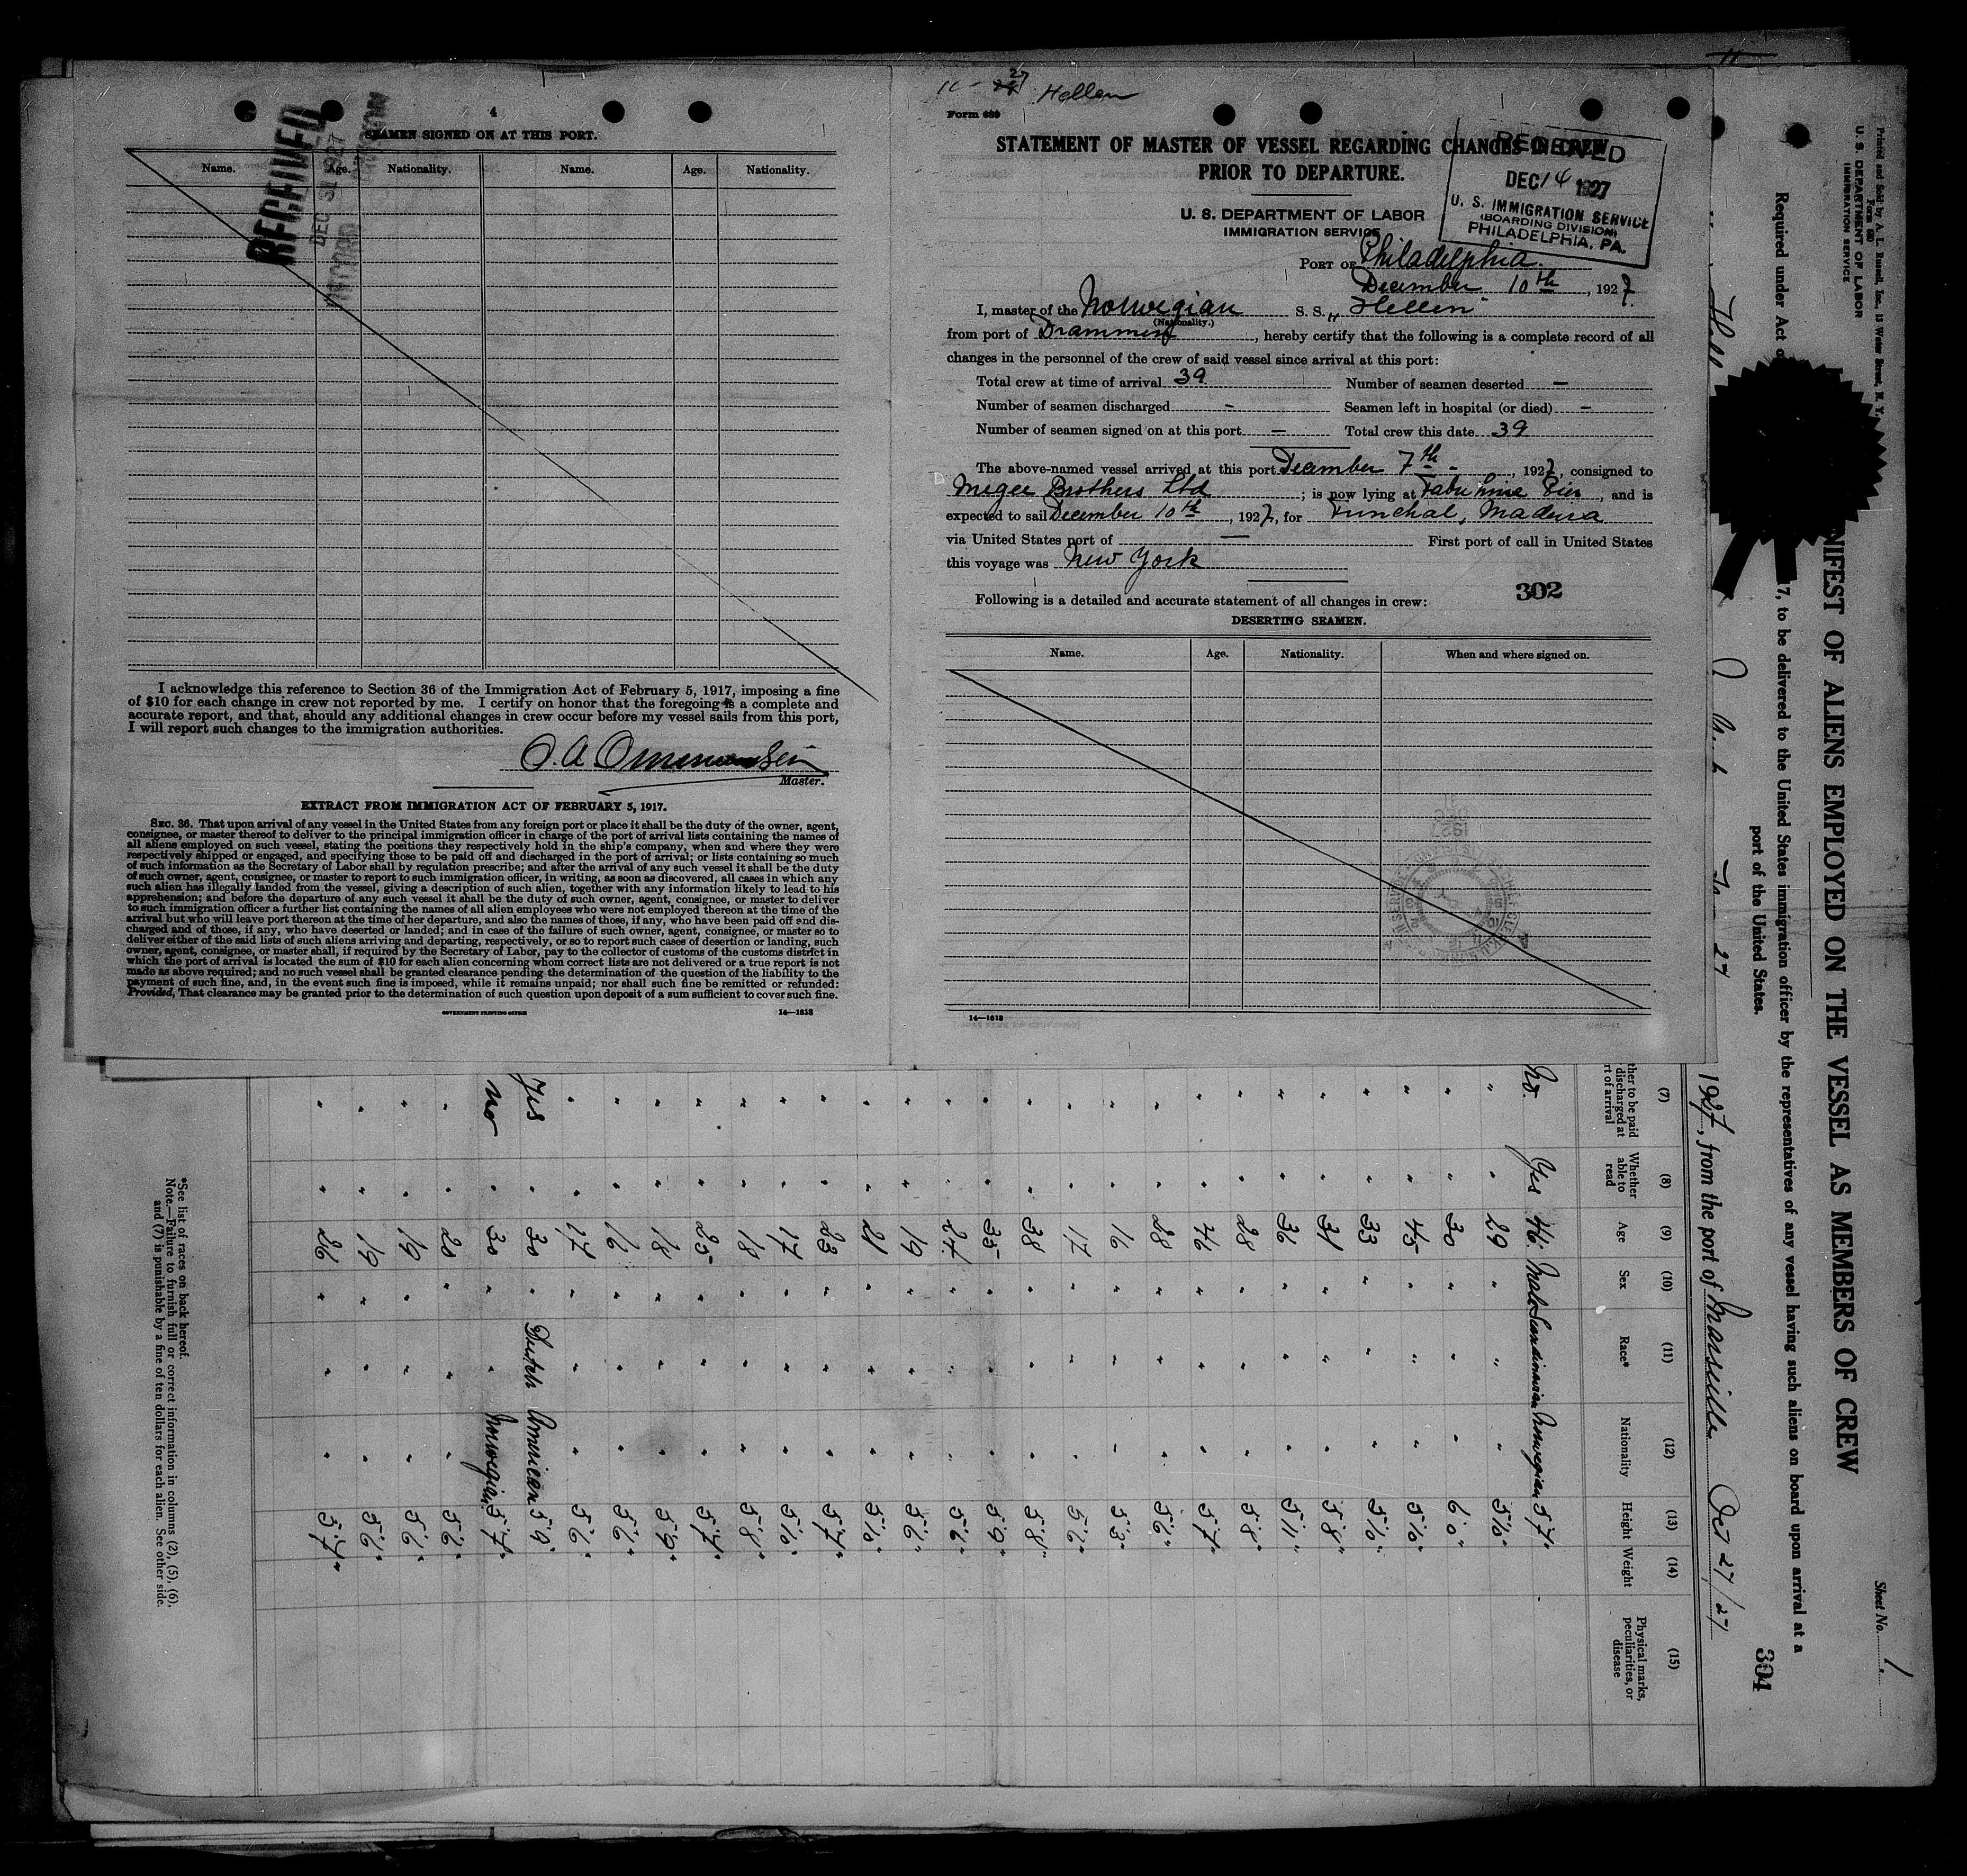 4
SEAMEN SIGNED ON AT THIS PORT.
Name. Age. Nationality. Name. Age. Nationality.
RECEIVED
DEC 31 1927
RECORD DIVISION
I acknowledge this reference to Section 36 of the Immigration Act of February 5, 1917, imposing a fine
of $10 for each change in crew not reported by me. I certify on honor that the foregoing is a complete and
accurate report, and that, should any additional changes in crew occur before my vessel sails from this port,
I will report such changes to the immigration authorities.
O. A.
Master.
EXTRACT FROM IMMIGRATION ACT OF FEBRUARY 5, 1917.
SEC. 36. That upon arrival of any vessel in the United States from any foreign port or place it shall be the duty of the owner, agent,
consignee, or master thereof to deliver to the principal immigration officer in charge of the port of arrival lists containing the names of
all aliens employed on such vessel, stating the positions they respectively hold in the ship's company, when and where they were
respectively shipped or engaged, and specifying those to be paid off and discharged in the port of arrival; or lists containing so much
of such information as the Secretary of Labor shall by regulation prescribe; and after the arrival of any such vessel it shall be the duty
of such owner, agent, consignee, or master to report to such immigration officer, in writing, as soon as discovered, all cases in which any
such alien has illegally landed from the vessel, giving a description of such alien, together with any information likely to lead to his
apprehension; and before the departure of any such vessel it shall be the duty of such owner, agent, consignee, or master to deliver
to such immigration officer a further list containing the names of all alien employees who were not employed thereon at the time of the
arrival but who will leave port thereon at the time of her departure, and also the names of those, if any, who have been paid off and dis-
charged and of those, if any, who have deserted or landed; and in case of the failure of such owner, agent, consignee, or master so to
deliver either of the said lists of such aliens arriving and departing, respectively, or so to report such cases of desertion or landing, such
owner, agent, consignee, or master shall, if required by the Secretary of Labor, pay to the collector of customs of the customs district in
which the port of arrival is located the sum of $10 for each alien concerning whom correct lists are not delivered or a true report is not
made as above required; and no such vessel shall be granted clearance pending the determination of the question of the liability to the
payment of such fine, and, in the event such fine is imposed, while it remains unpaid; nor shall such fine be remitted or refunded:
Provided, That clearance may be granted prior to the determination of such question upon deposit of a sum sufficient to cover such fine.
GOVERNMENT PRINTING OFFICE 14—1618
11 - 27 Hellen
Form 689
STATEMENT OF MASTER OF VESSEL REGARDING CHANGES IN CREW
PRIOR TO DEPARTURE.
RECEIVED
DEC 14 1927
U. S. IMMIGRATION SERVICE
(BOARDING DIVISION)
PHILADELPHIA, PA.
U. S. DEPARTMENT OF LABOR
IMMIGRATION SERVICE
PORT OF Philadelphia.
December 10th, 1927.
I, master of the Norwegian S. S. "Hellen"
(Nationality.)
from port of Drammen, hereby certify that the following is a complete record of all
changes in the personnel of the crew of said vessel since arrival at this port:
Total crew at time of arrival 39 Number of seamen deserted —
Number of seamen discharged - Seamen left in hospital (or died) -
Number of seamen signed on at this port — Total crew this date 39
The above-named vessel arrived at this port December 7th -, 1927, consigned to
Megee Brothers Ltd; is now lying at Pier, and is
expected to sail December 10th, 1927, for Funchal, Madeira
via United States port of — First port of call in United States
this voyage was New York
302
Following is a detailed and accurate statement of all changes in crew:
DESERTING SEAMEN.
Name. Age. Nationality. When and where signed on.
14—1618
Printed and Sold by A. L. Russell, Inc., 15 Water Street, N. Y.
Form 680
U. S. DEPARTMENT OF LABOR
IMMIGRATION SERVICE
Sheet No. 1
NIFEST OF ALIENS EMPLOYED ON THE VESSEL AS MEMBERS OF CREW
Required under Act o 7, to be delivered to the United States immigration officer by the representatives of any vessel having such aliens on board upon arrival at a
port of the United States.
304
1927, from the port of Marseille Oct 27/27
(7) (8) (9) (10) (11) (12) (13) (14) (15)
ther to be paid discharged at rt of arrival Whether able to read Age Sex Race* Nationality Height Weight Physical marks, peculiarities, or disease
No. Yes 46. Male Scandinavian Norwegian 5'7"
" " 29 " " " 5'10"
" " 30 " " " 6'0"
" " 45 " " " 5'6"
" " 33 " " " 5'10"
" " 31 " " " 5'8"
" " 36 " " " 5'11"
" " 28 " " " 5'8"
" " 46 " " " 5'7"
" " 28 " " " 5'6"
" " 16 " " " 5'3"
" " 17 " " " 5'6"
" " 38 " " " 5'8"
" " 35 " " " 5'9"
" " 24 " " " 5'6"
" " 19 " " " 5'6"
" " 21 " " " 5'10"
" " 23 " " " 5'7"
" " 17 " " " 5'10"
" " 18 " " " 5'8"
" " 25 " " " 5'7"
" " 18 " " " 5'9"
" " 16 " " " 5'6"
" " 17 " " " 5'6"
Yes " 30 " Dutch American 5'9"
No " 30 " " Norwegian 5'7"
" " 20 " " " 5'6"
" " 19 " " " 5'6"
" " 19 " " " 5'6"
" " 26 " " " 5'7"
*See list of races on back hereof.
Note.—Failure to furnish full or correct information in columns (2), (5), (6),
and (7) is punishable by a fine of ten dollars for each alien. See other side.